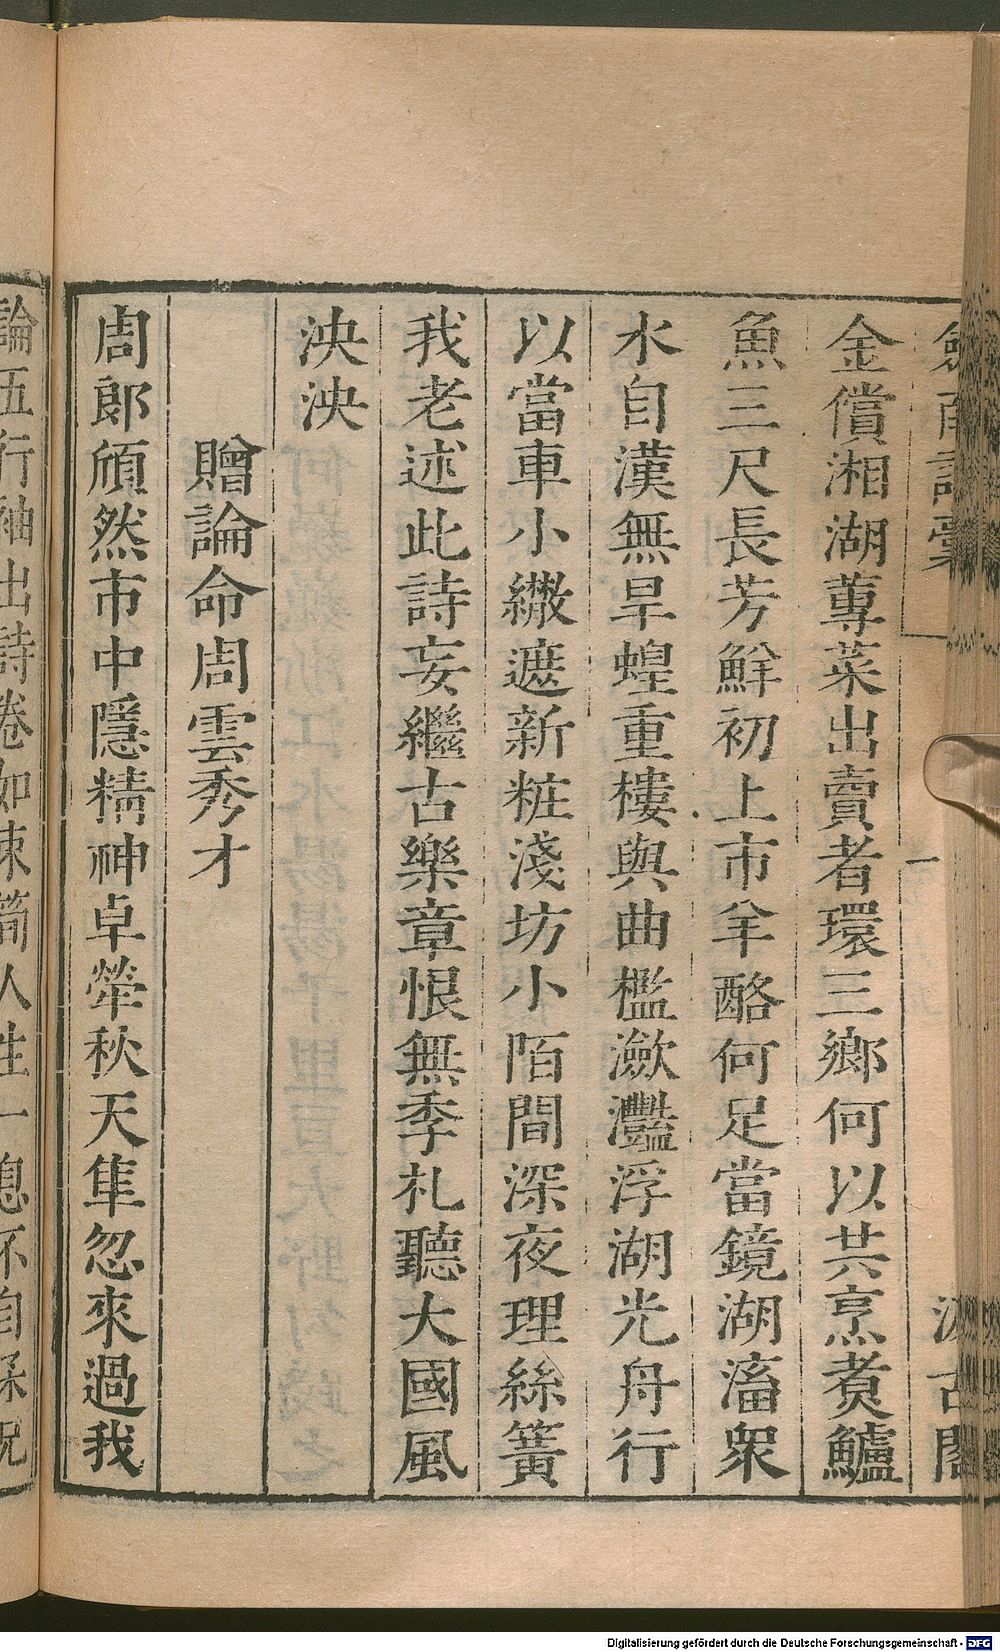 劒南詩稾
一
汲古閣
金償湘湖蓴菜出賣者環三鄉何以共烹煑鱸
魚三尺長芳鮮初上市羊酪何足當鏡湖滀衆
水自漢無旱蝗重樓與曲檻瀲灩浮湖光舟行
以當車小繖遮新粧淺坊小陌間深夜理絲簧
我老述此詩妄繼古樂章恨無季札聽大國風
泱泱
贈論命周雲秀才
周郎頎然市中隱精神卓犖秋天隼忽來過我
論五行袖出詩卷如束筍人生一息不自保況
Digitalisierung gefördert durch die Deutsche Forschungsgemeinschaft - DFG